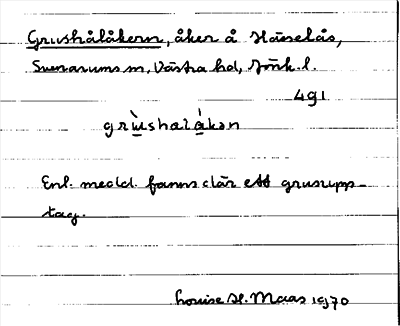 Grushålåkern, åker å Hässelås,
Svenarums sn, Västra hd, Jönk. l.
491
grùshɷlàkən
Enl. medd. fanns där ett grusupp-
tag.
Louise H. Maas 1970